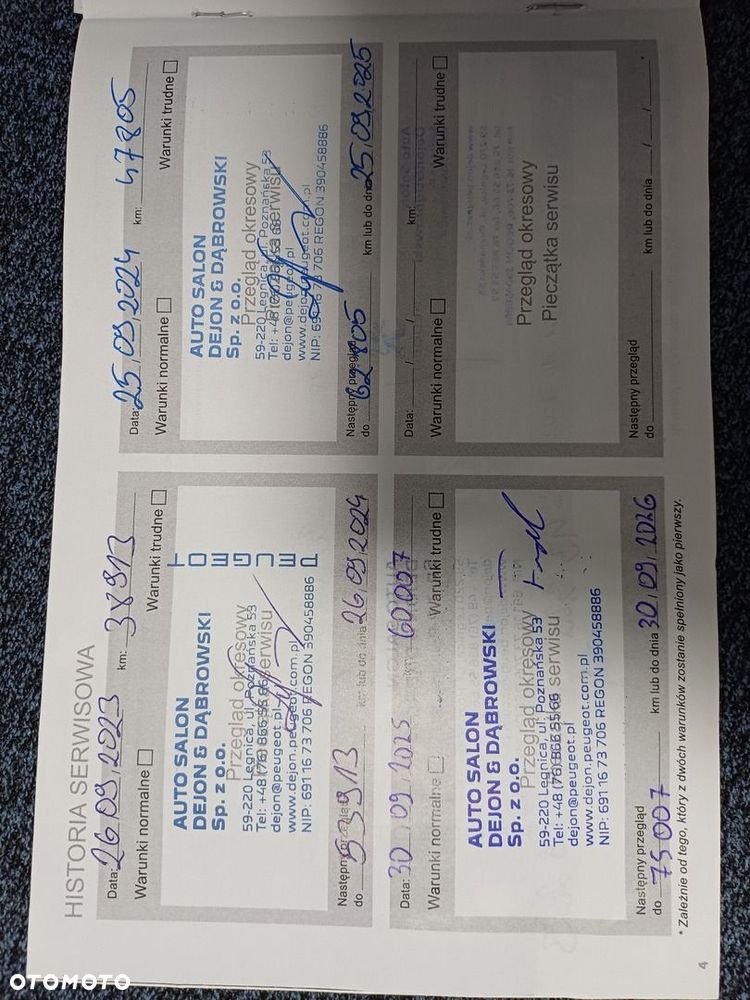 HISTORIA SERWISOWA
Data: 26/09/2023 km: 38913
Warunki normalne Warunki trudne
AUTO SALON
DEJON & DĄBROWSKI
Sp. z o.o.
Przegląd okresowy
59-220 Legnica, ul. Poznańska 53
Tel: +48 (76) 866 55 66
dejon@peugeot.pl
www.dejon.peugeot.com.pl
NIP: 691 16 73 706 REGON 390458886
PEUGEOT
Następny przegląd
do 53913 km lub do dnia 26/09/2024
Data: 25/09/2024 km: 47805
Warunki normalne Warunki trudne
AUTO SALON
DEJON & DĄBROWSKI
Sp. z o.o.
Przegląd okresowy
59-220 Legnica, ul. Poznańska 53
Tel: +48 (76) 866 55 66
dejon@peugeot.pl
www.dejon.peugeot.com.pl
NIP: 691 16 73 706 REGON 390458886
Następny przegląd
do 62805 km lub do dnia 25/09/2025
Data: 30/09/2025 km: 60007
Warunki normalne Warunki trudne
AUTO SALON
DEJON & DĄBROWSKI
Sp. z o.o.
Przegląd okresowy
Pieczątka serwisu
59-220 Legnica, ul. Poznańska 53
Tel: +48 (76) 866 55 66
dejon@peugeot.pl
www.dejon.peugeot.com.pl
NIP: 691 16 73 706 REGON 390458886
Następny przegląd
do 75007 km lub do dnia 30/09/2026
Data: / / km:
Warunki normalne Warunki trudne
Przegląd okresowy
Pieczątka serwisu
Następny przegląd
do km lub do dnia / / *
* Zależnie od tego, który z dwóch warunków zostanie spełniony jako pierwszy.
4
OTOMOTO